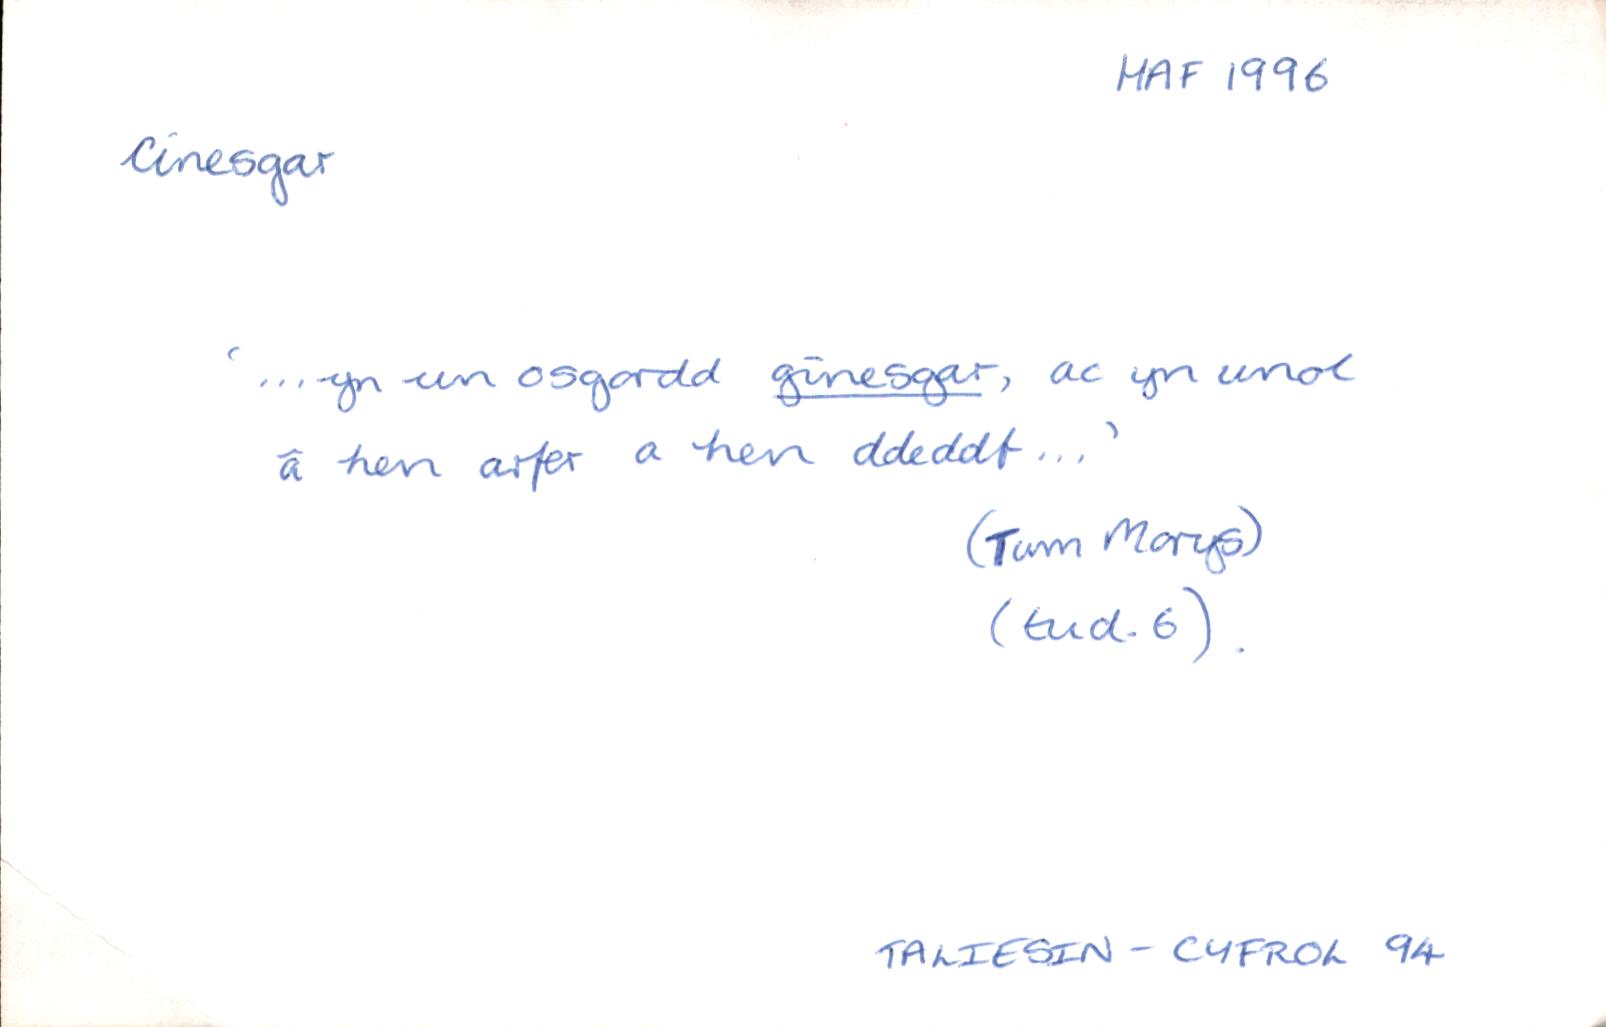 HAF 1996
Cînesgar
'...yn un osgordd gînesgar, ac yn unol
â hen arfer a hen ddeddf...'
(Twm Morys)
(tud. 6).
TALIESIN - CYFROL 94